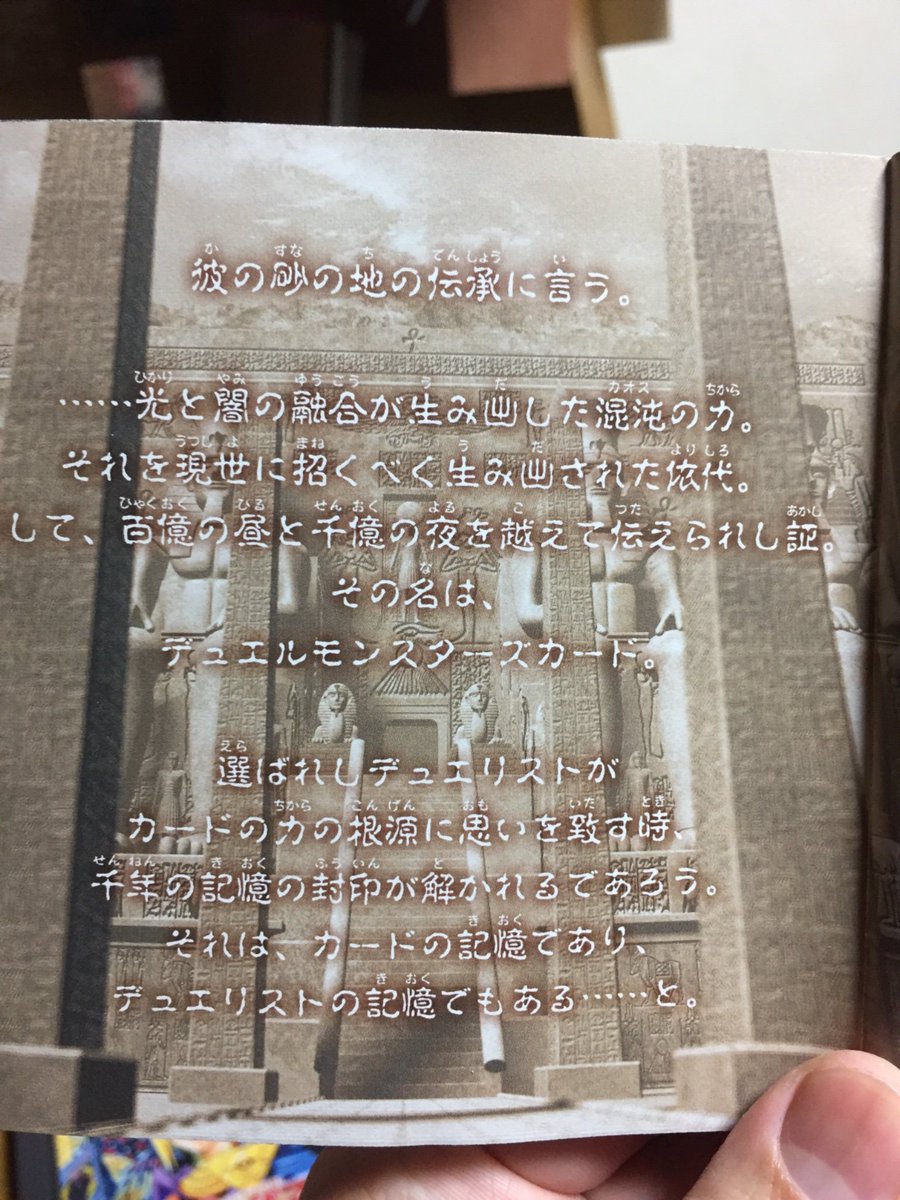 彼の砂の地の伝承に言う。
……光と闇の融合が生み出した混沌の力。
それを現世に招くべく生み出された依代。
して、百億の昼と千億の夜を越えて伝えられし証。
その名は、
デュエルモンスターズカード。
選ばれしデュエリストが
カードの力の根源に思いを致す時、
千年の記憶の封印が解かれるであろう。
それは、カードの記憶であり、
デュエリストの記憶でもある……と。